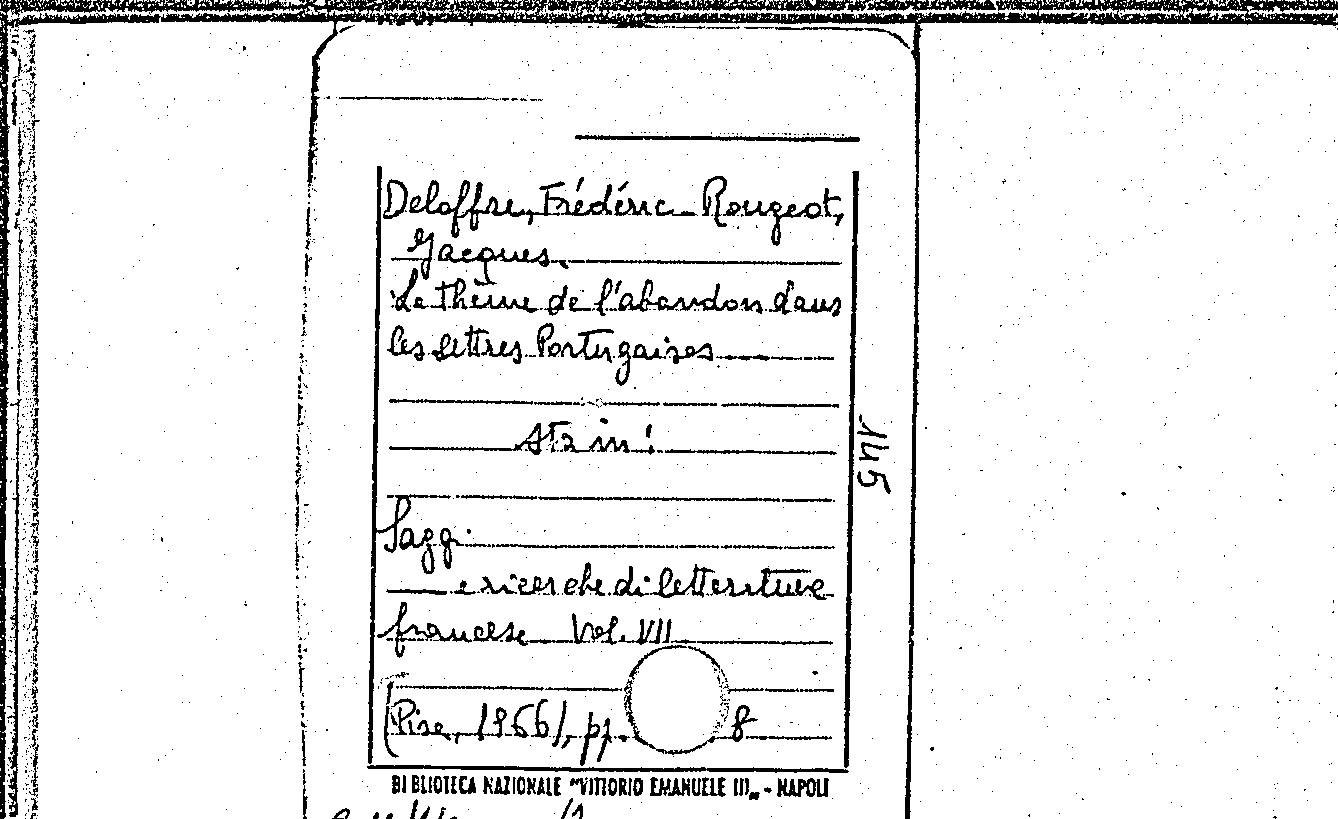 Deloffre, Frédéric - Rougeot,
Jacques.
Le thème de l'abandon dans
les Lettres Portugaises
sta in:
Saggi
e ricerche di letteratura
francese Vol. VII
(Pisa, 1966), pp. 8
145
BIBLIOTECA NAZIONALE "VITTORIO EMANUELE III„ - NAPOLI